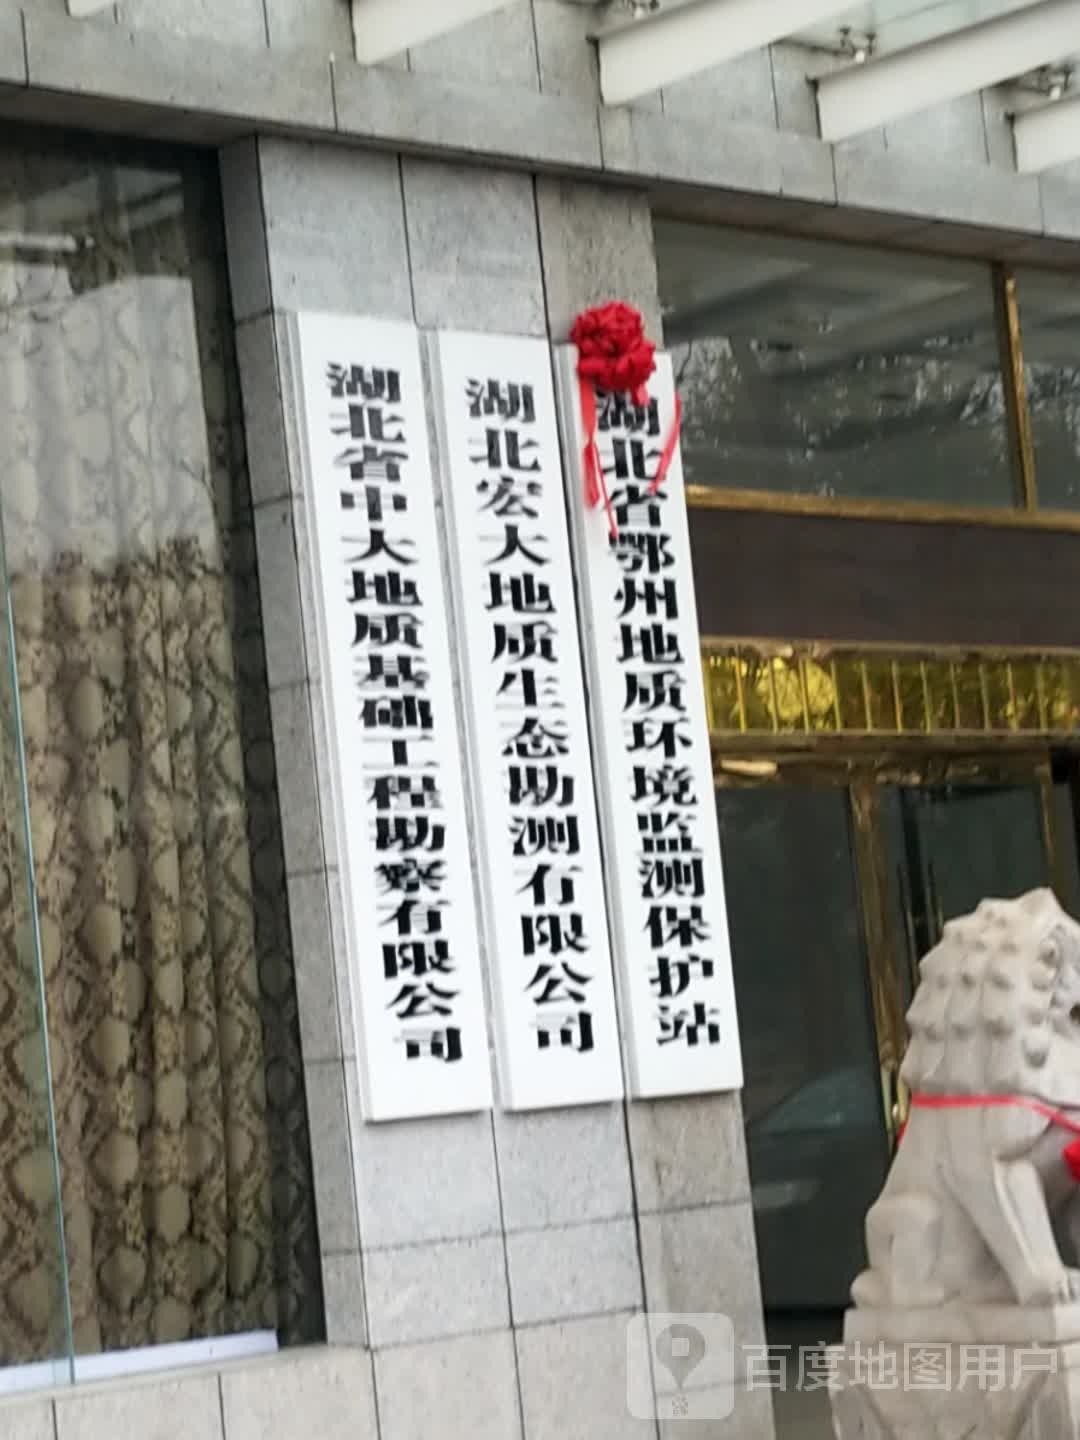 湖北省中大地质基础工程勘察有限公司
湖北宏大地质生态勘测有限公司
湖北省鄂州地质环境监测保护站
百度地图用户